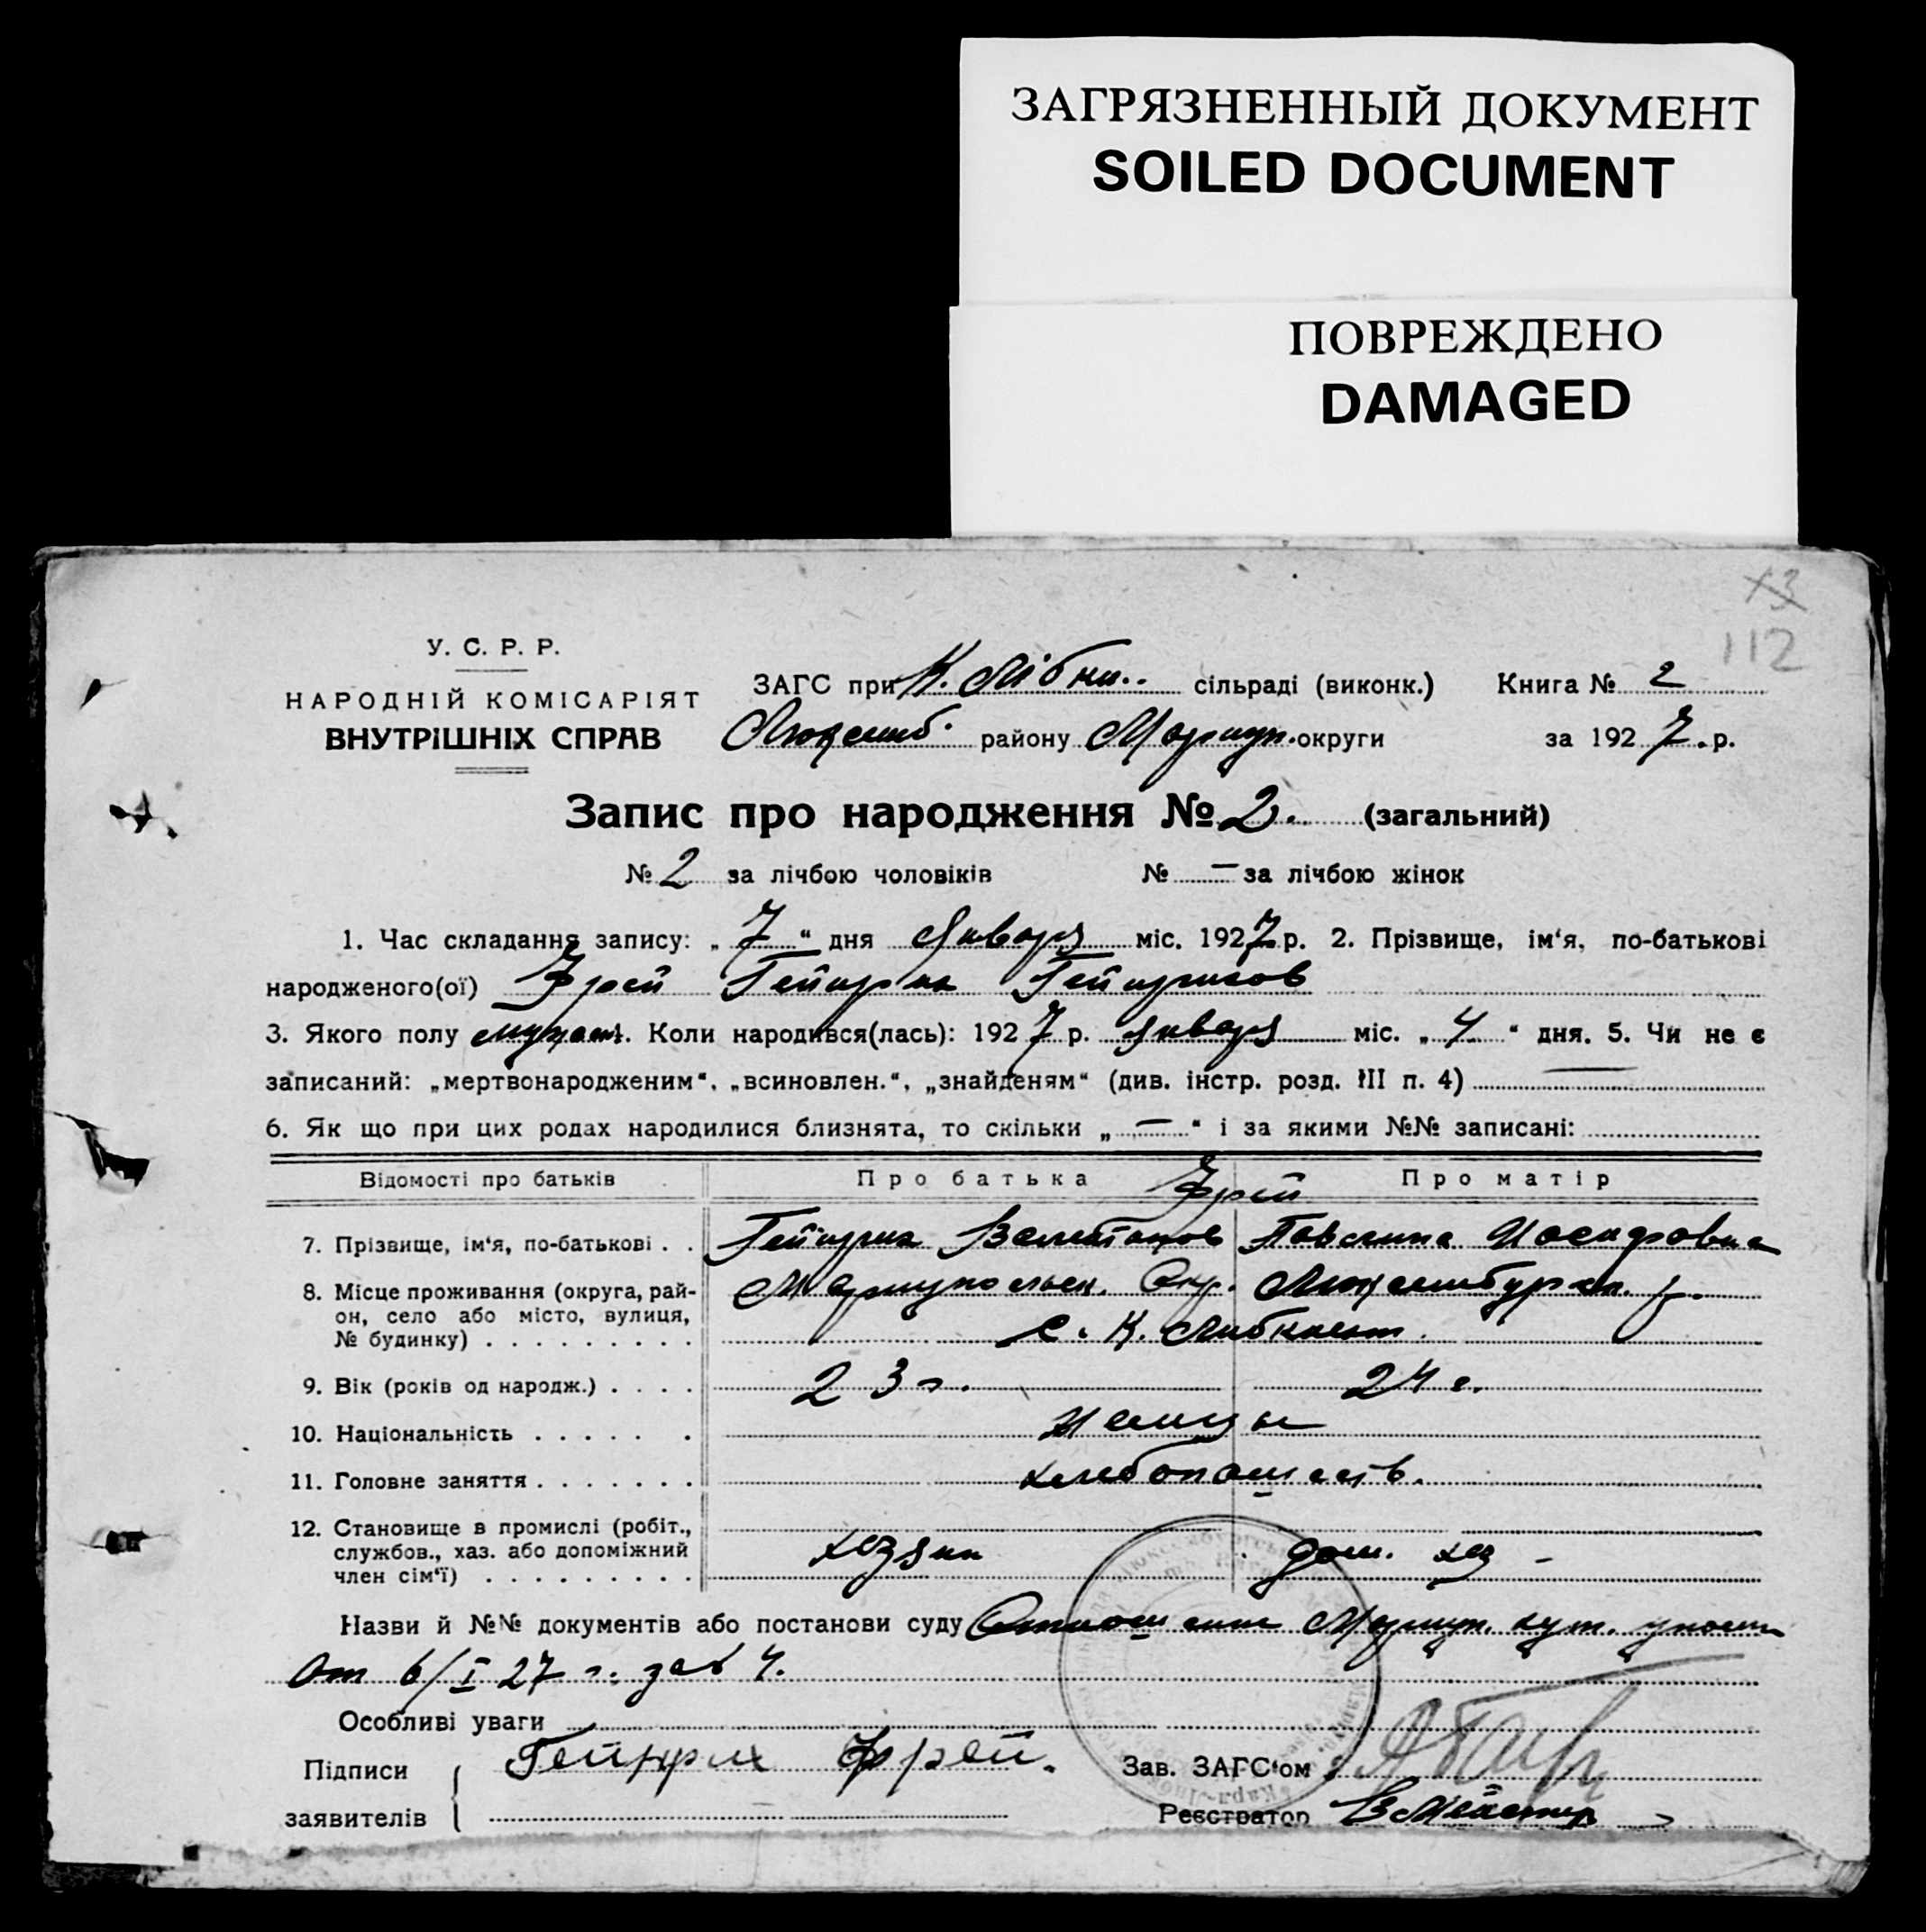 ЗАГРЯЗНЕННЫЙ ДОКУМЕНТ
SOILED DOCUMENT
ПОВРЕЖДЕНО
DAMAGED
13
112
У. С. Р. Р.
НАРОДНІЙ КОМІСАРІЯТ
ВНУТРІШНІХ СПРАВ
ЗАГС при К. Лібкн.. сільраді (виконк.) Книга № 2
Люксемб. району Мариуп. округи за 1927. р.
Запис про народження № 2. (загальний)
№ 2 за лічбою чоловіків № — за лічбою жінок
1. Час складання запису: „7“ дня Января міс. 1927 р. 2. Прізвище, ім‘я, по-батькові
народженого(ої) Фрей Гейнрих Гейнрихов
3. Якого полу мужск 4. Коли народився(лась): 1927 р. января міс. „4“ дня. 5. Чи не є
записаний: „мертвонародженим“, „всиновлен.“, „знайденям“ (див. інстр. розд. III п. 4) —
6. Як що при цих родах народилися близнята, то скільки „—“ і за якими №№ записані:
Відомості про батьків Про батька Про матір
Фрей
7. Прізвище, ім‘я, по-батькові . . Гейнрих Павлина Иосифовна
8. Місце проживання (округа, рай- Мариупольск. Окр. Люксембургск. р.
он, село або місто, вулиця,
№ будинку) с. К. Либкнехт.
9. Вік (років од народж.) . . . . 23 г. 24 г.
10. Національність . . . . . . немцы
11. Головне заняття . . . . . . . хлебопашеств.
12. Становище в промислі (робіт.,
службов., хаз. або допоміжний хозяин дом. хоз -
член сім‘ї) . . . . . . . . .
Назви й №№ документів або постанови суду Отношение Мариуп.
От 6/I 27 г. за № 4.
Особливі уваги
Підписи Гейнрих Фрей. Зав. ЗАГС‘ом
заявителів Реєстратор